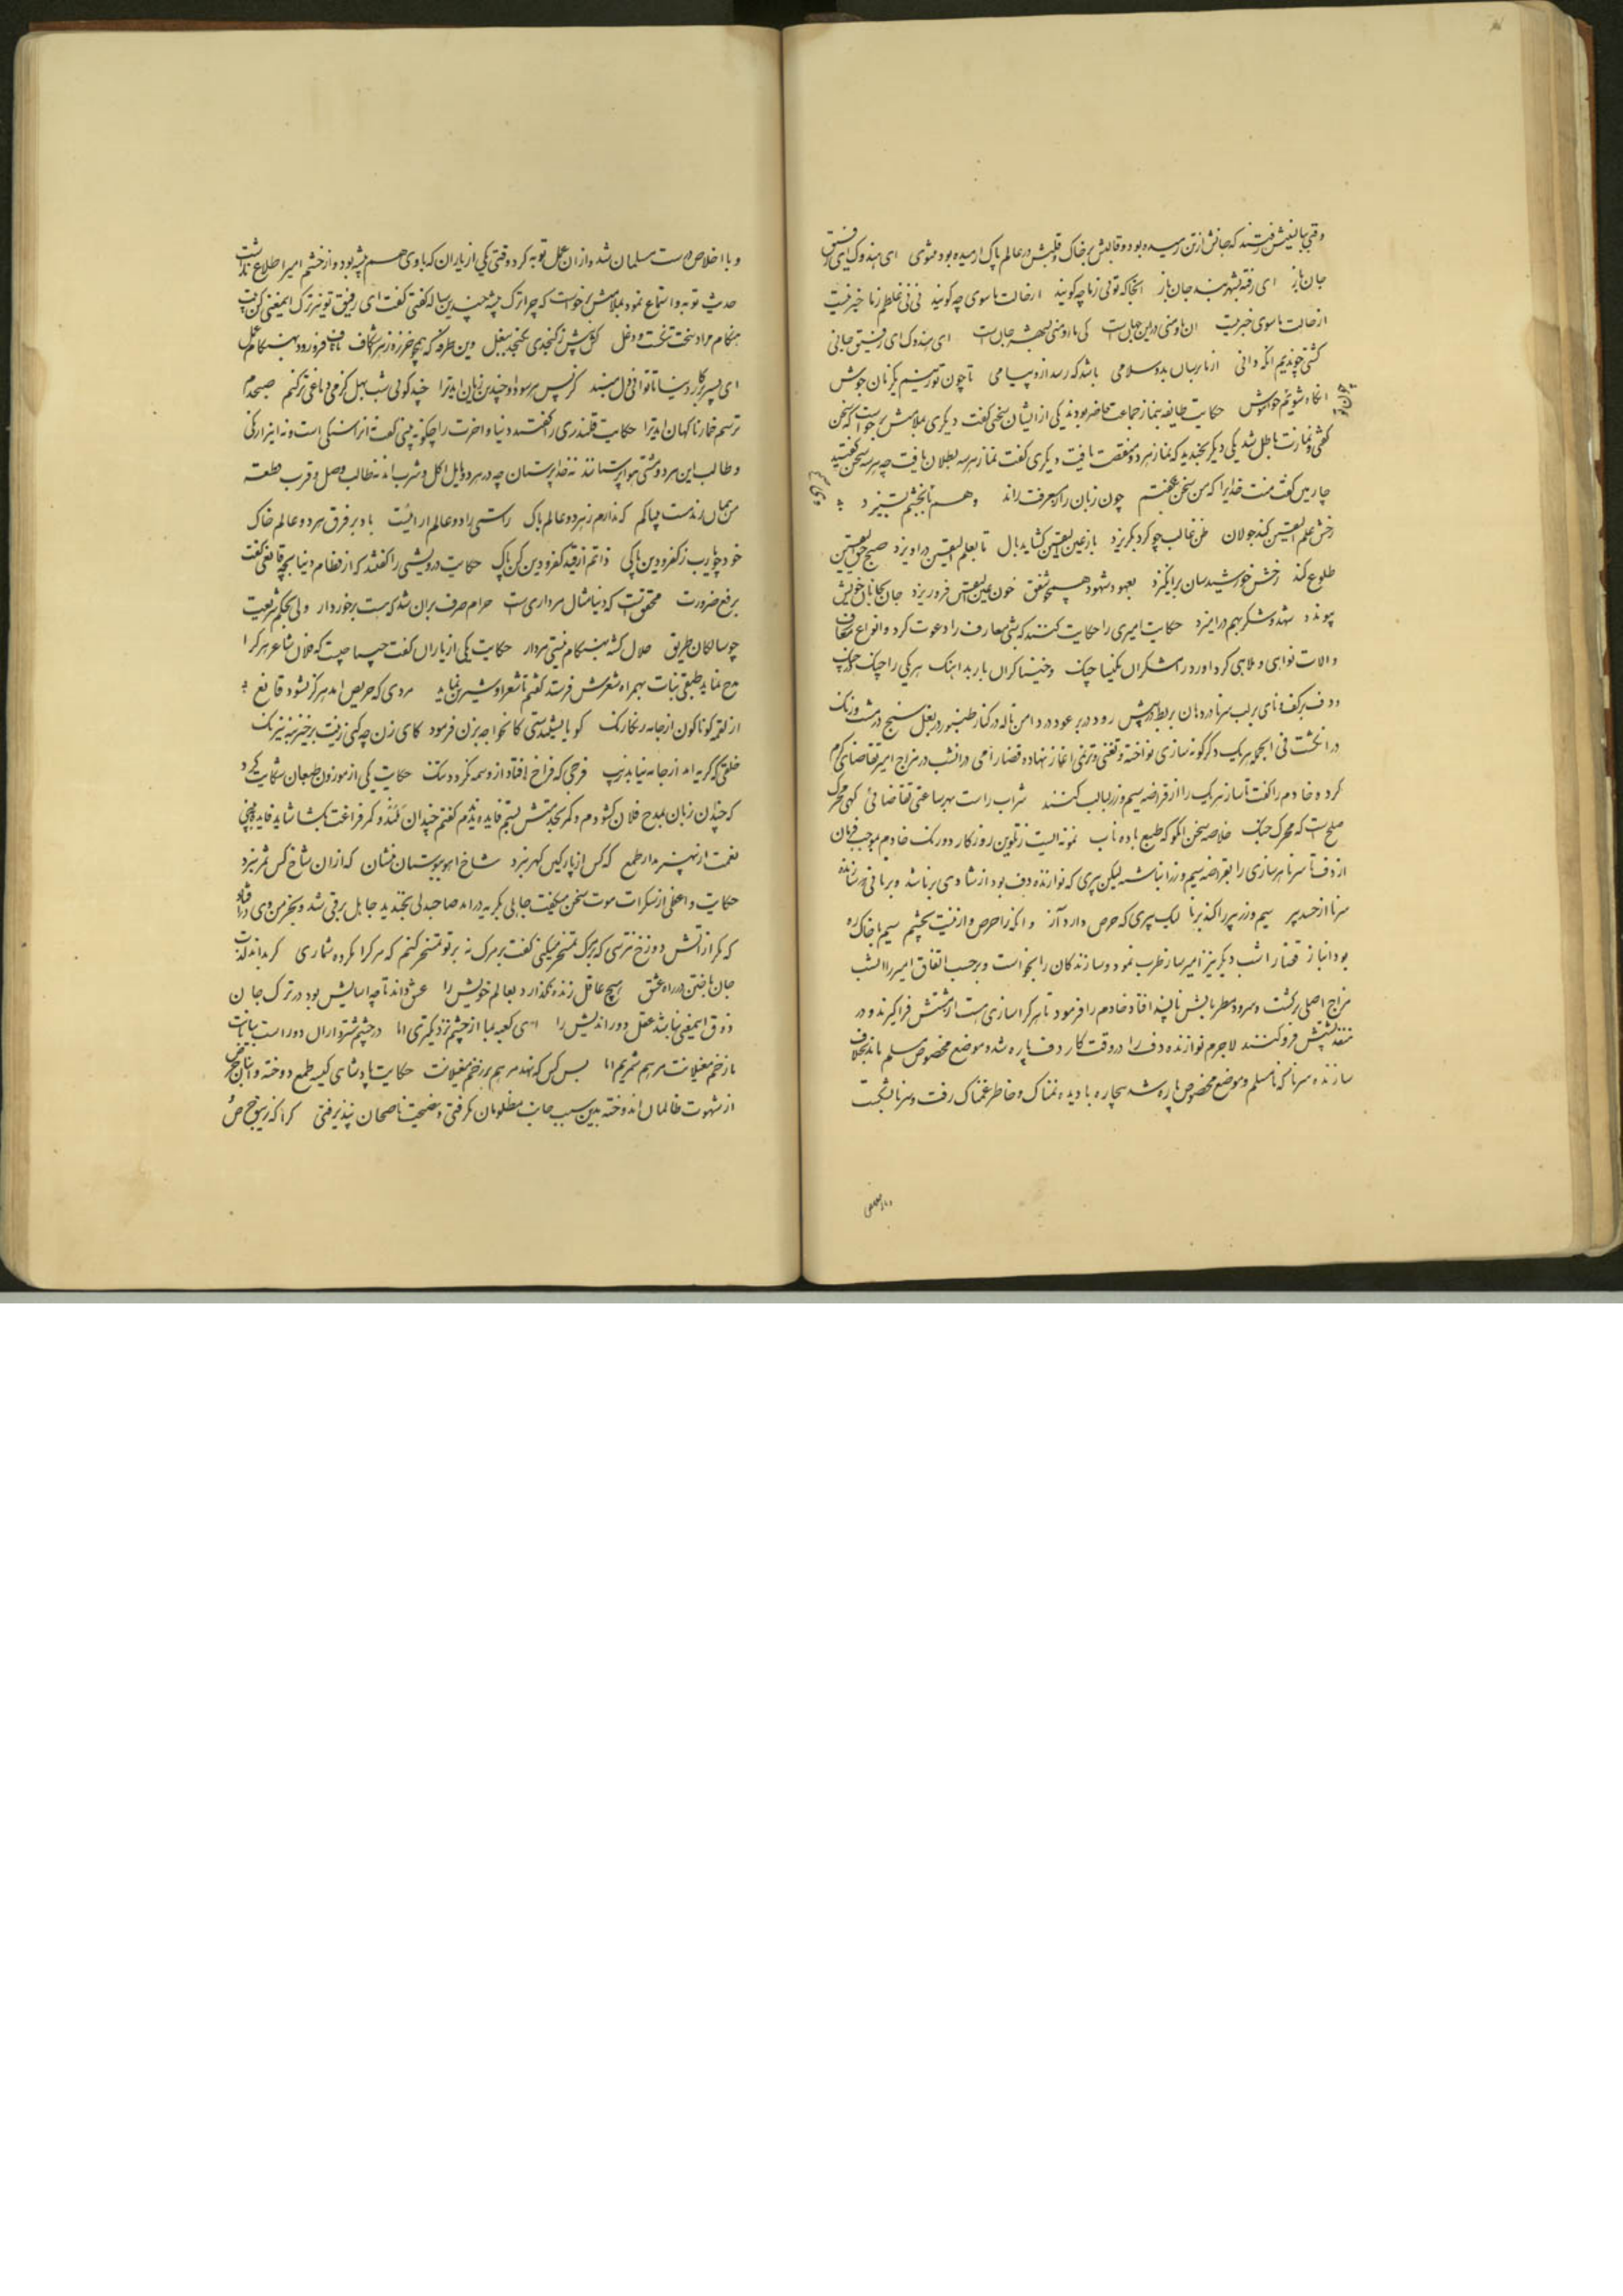 وقتی ببالینش رفتند که جانش از تن رمیده بود و قالبش بر خاک و قلبش در عالم پاک ارمیده بود مثنوی ای هندوک ای رفیق
جان باز ای رفته بشهر هند جان باز انجا که توئی ز ما چه کویند از حالت ماسوی چه کویند نی نی غلطم ز ما خبر نیست
از حالت ماسوی خبر نیست این ما و منی درین جهان است کی ما و منی بشهر جان است ای هندوک ای رفیق جانی
کشتی چو ندیم انکه دانی از ما برسان بدو سلامی باشد که رسد ازو پیامی تا چون تو زنیم یکزمان جوش
انکاه شویم خواموش حکایت طایفه بنماز جماعت حاضر بودند یکی از ایشان سخنی کفت دیکری ملامتش برخواست که سخن
کفتی و نمازت باطل شد یکی دیکر بخندید که نماز هر دو منقصت یافت دیکری کفت نماز هر سه بطلان یافت چه هر سه سخن کفتید
چارمین کفت منت خدایرا که من سخن نکفتم چون زبان راز معرفت راند وهم با خشم بستیزد
رخش علم الیقین کند جولان ظن غالب چو کرد بکریزد باز عین الیقین کشاید بال تا بعلم الیقین دراویزد صبح حق الیقین
طلوع کند رخش خورشیدسان برانکیزد بعهود شهود همچو شفق خون عین الیقین فرو ریزد جان بجانان خویش
پیوندد شهد و شکر بهم درامیزد حکایت امیری را حکایت کنند که شبی معارف را دعوت کرد و انواع معازف
و الات نواهی و ملاهی کرد اورد رامشکران نکیسا چنک و خنیاکران باربد اهنک هر یکی را چنک در چنک
و دف بر کف و نای بر لب سرنا در دهان بربط در پیش رود در بر عود در دامن ناله در کنار طنبور در بغل سنج در مشت و زنک
در انکشت فی الجمله هر یک دکرکونه سازی نواخته و تغنی و ترنمی اغاز نهاده قضا را می در انشب در مزاج امیر تقاضای کرم
کرد و خادم را کفت تا ساز هر یک را از قراضه سیم و زر لبالب کنند شراب راست بهر ساعتی تقاضائی کهی محرک
صلح است که محرک جنک خلاصه سخن انکو که طبع باده ناب نمونه ایست ز تلوین روزکار دو رنک خادم بموجب فرمان
از دف تا سرنا هر سازی را بقراضه سیم و زر انباشت لیکن پیری که نوازنده دف بود از شادی برنا شد و برنائی سازنده
سرنا از حسد پیر سیم و زر پیر را کند برنا لیک پیری که حرص دارد و آز و انکه را حرص و از نیست بچشم سیم با خاک ره
بود انباز قضا را شب دیکر نیز امیر ساز طرب نمود و سازندکان را بخواست و برحسب اتفاق امیر را انشب
مزاج اصلی برکشت و سرود مطربانش ناپسند افتاد خادم را فرمود تا هر کرا سازی هست از مشتش فرا کیرند و در
منفذ پشتش فرو کنند لاجرم نوازنده دف را در وقت کار دف پاره شد و موضع مخصوص مسلم ماند بخلاف
سازنده سرنا که نامسلم و موضع مخصوص پاره شد بیچاره با دیده نمناک و خاطر غمناک رفت و سرنا بشکست
و با اخلاص درست مسلمان شد و از ان عمل توبه کرد وقتی یکی از یاران که با وی هم پیشه بود و از خشم امیر اطلاع نداشت
حدیث توبه وی استماع نمود بملامتش برخواست که چرا ترک پیشه چندین ساله کفتی کفت ای رفیق تو نیز ترک این معنی کن
ای پسر کار دنیا تا توانی دل مبند
ترسم خمار ناکهان اید ترا حکایت قلندری را کفتند دنیا و اخرت را چکونه بینی کفت نه انرا سنکی است و نه اینرا رنکی
و طالب این هر دو مشتی هواپرستانند نه خداپرستان چه در هر دو مایل اکل و شربند نه طالب وصل و قرب قطعه
من همان رند مست بیباکم که ندارم ز هر دو عالم باک راستی را دو عالم ارائیست باد بر فرق هر دو عالم خاک
خود چو یارب ز کفر و دین پاکی ذاتم از قید کفر و دین کن پاک حکایت درویشی را کفتند که از حطام دنیا بچه قانعی کفت
برفع ضرورت محققست که دنیا مثال مرداری است حرام صرف بران شد که هست برخوردار ولی بحکم شریعت
چو سالکان طریق حلال کشته بهنکام نیستی مردار حکایت یکی از یاران کفت سبب چیست که فلان شاعر هر کرا
مدح نماید طبقی نبات بهمراه شعرش فرستد کفتم تا شعر او شیرین نماید مردی که حریص امد هرکز نشود قانع
از لقمه کوناکون از جامه رنکارنک کویا بشب مستی کانخواجه بزن فرمود کای زن چه کنی زینت برخیز به نیرنک
خلقی که کریه امد از جامه نیابد زیب فرجی که فراخ افتاد از وسمه نکردد تنک حکایت یکی از موزون طبعان شکایت کرد
که چندان زبان بمدح فلان کشودم و کمر بخدمتش بستم فایده ندیدم کفتم چندان کمند و کمر فراغت بکشا شاید فایده بینی
نعمت از بهنر مدار طمع که کس از پارکین کهر نبرد شاخ اهو ببوستان منشان که از ان شاخ کس ثمر نبرد
حکایت واعظی از سکرات موت سخن میکفت جاهلی بکریه درامد صاحبدلی بخندید جاهل برقی شد و بخرمن وی درافتاد
که مکر از اتش دوزخ نترسی که بمرک تمسخر میکنی کفت بر مرک نه بر تو تمسخر کنم که مرک را مکرده شماری کر بداند لذت
جان باختن در راه عشق هیچ عاقل زنده نکذارد بعالم خویش را عشق داند تا چه اسایش بود در ترک جان
ذوق این معنی نباشد عقل دوراندیش را ای کعبه ما از چشم نزدیکتری اما در چشم شترداران دور است بیابانت
ما زخم مغیلانت مرهم شمریم اما بس کس که نهد مرهم بر زخم مغیلانت حکایت پادشاهی کیسه طمع دوخته و
از شهوت ظالمان اندوخته بدین سبب جانب مظلومان نکرفتی و نصیحت ناصحان نپذیرفتی